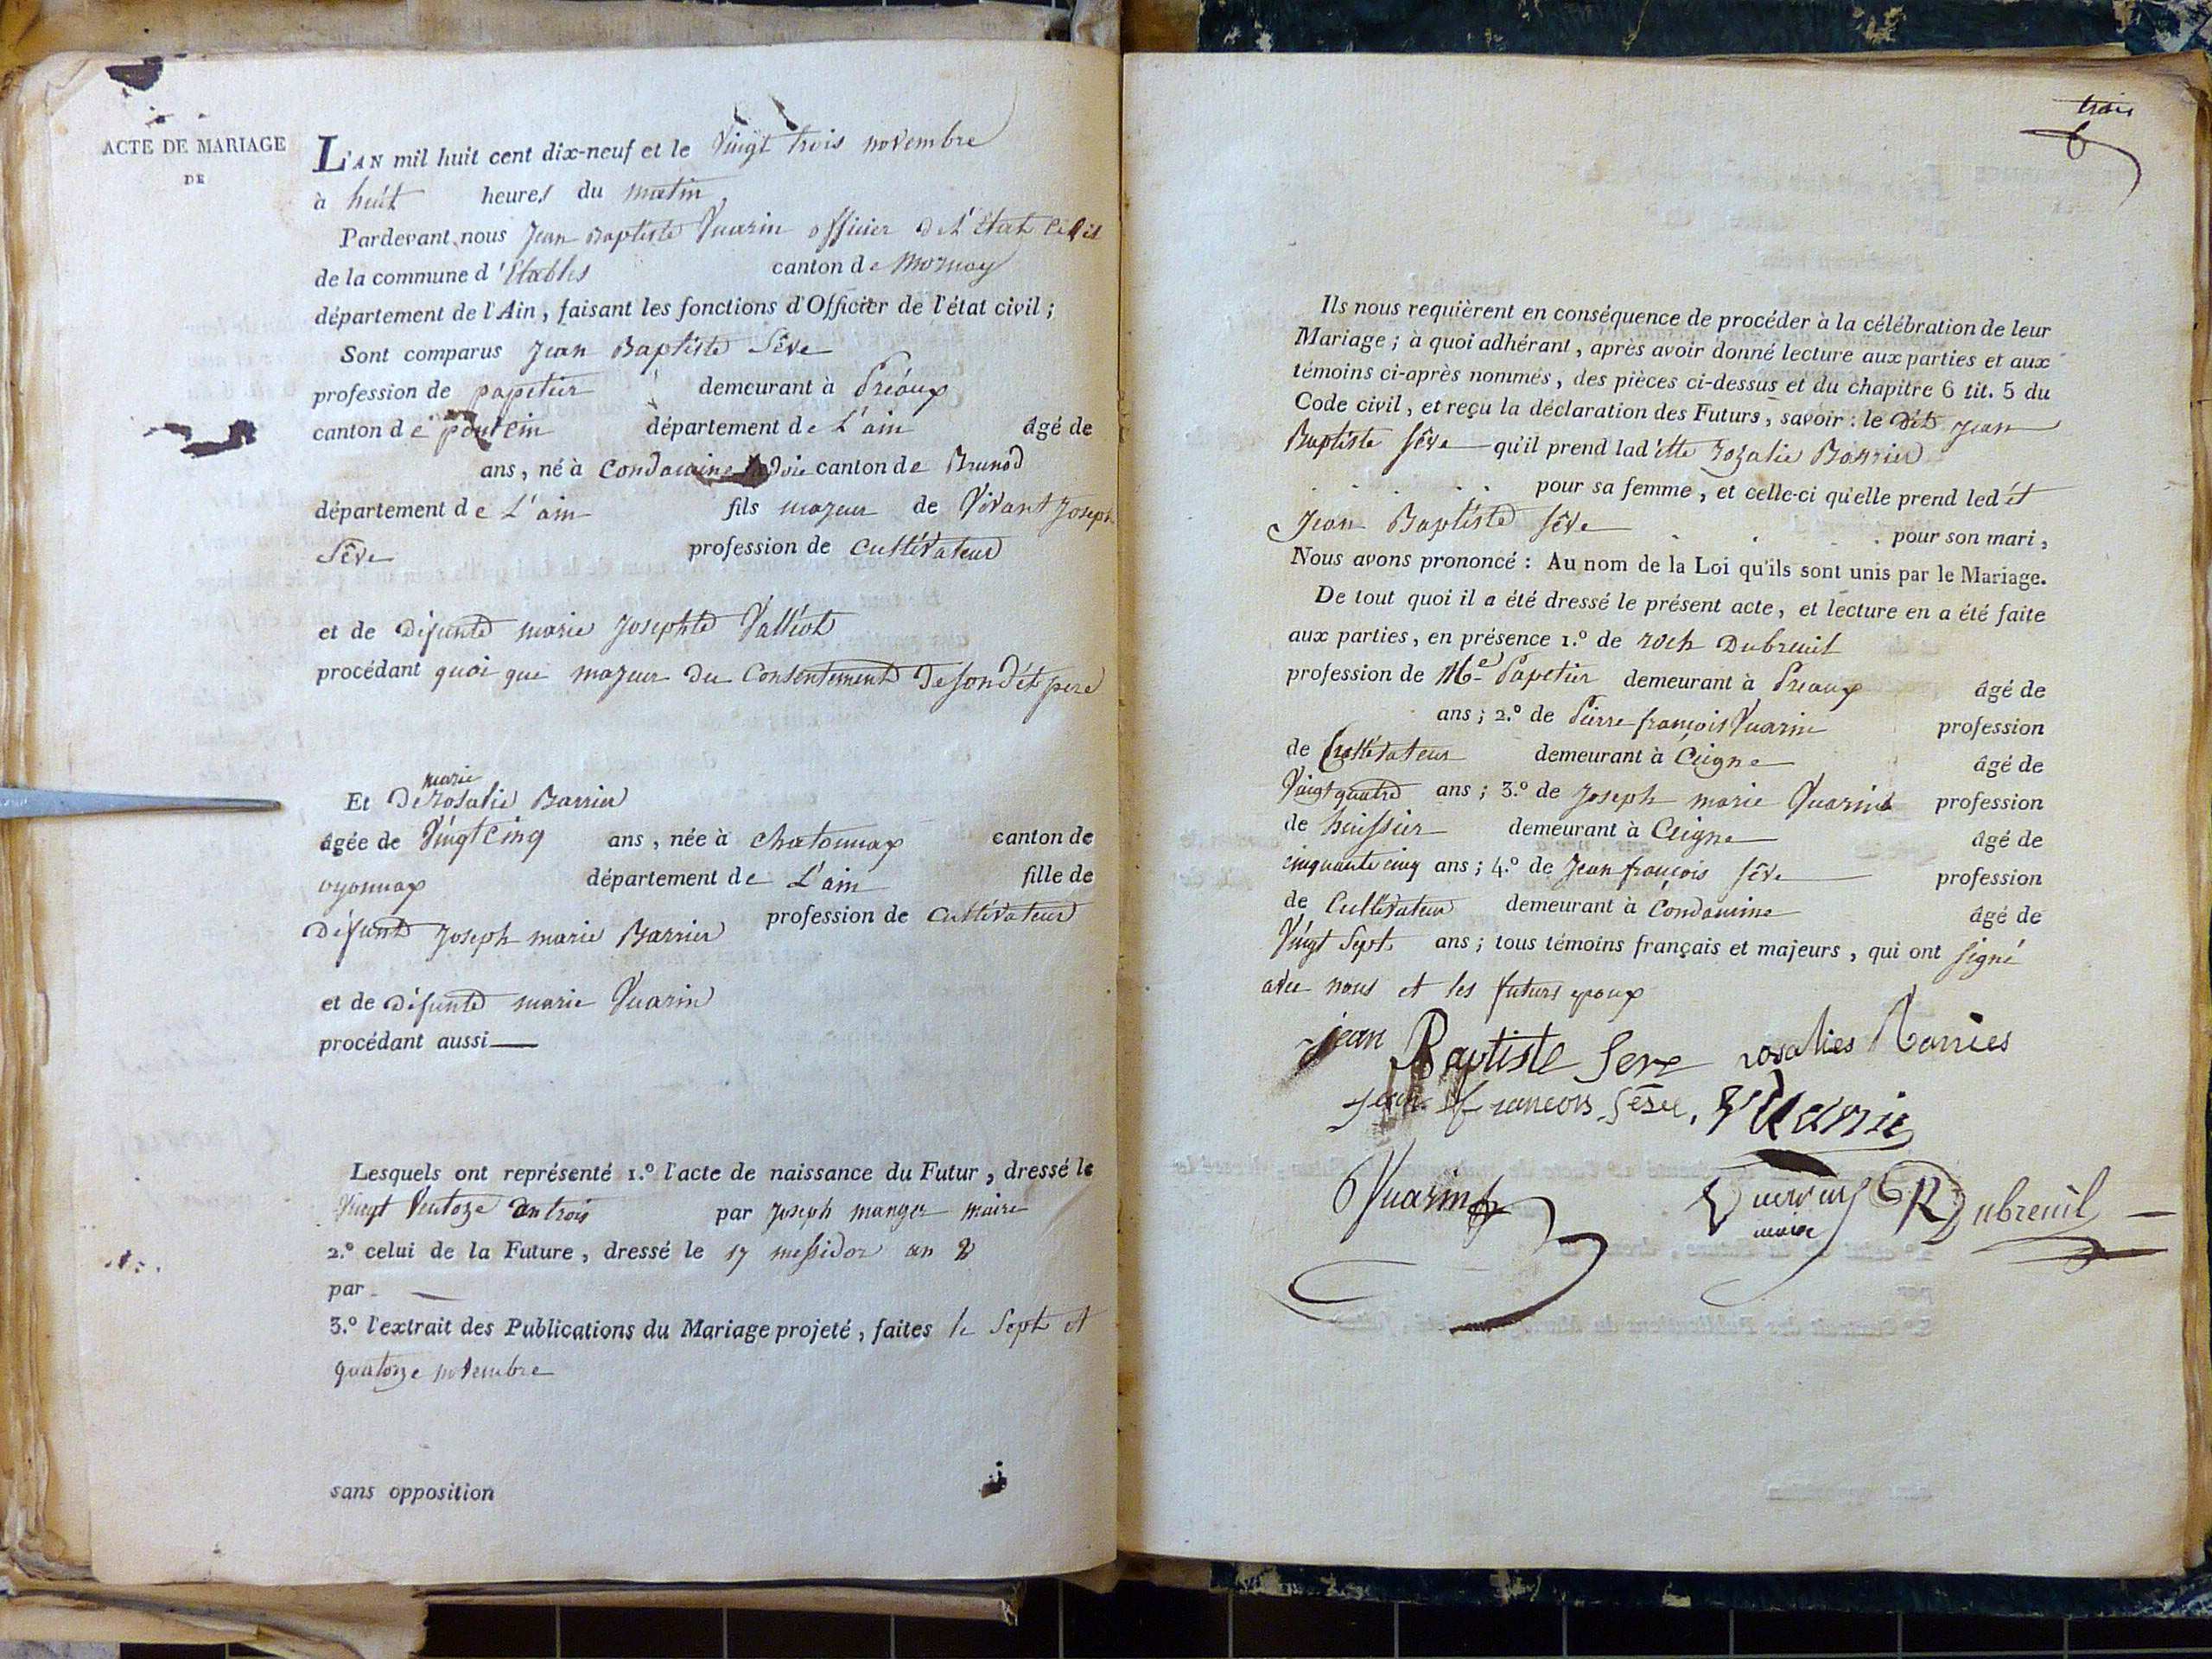 ACTE DE MARIAGE
DE
L'AN mil huit cent dix-neuf et le Vingt trois novembre
à huit heures du matin
Pardevant nous Jean Baptiste Vuarin officier de L'Etat Civil
de la commune d'Etables canton de Mornay
département de l'Ain, faisant les fonctions d'Officier de l'état civil ;
Sont comparus Jean Baptiste Sêve
profession de papetier demeurant à Préaux
canton de poncin département de L'ain âgé de
ans, né à Condamine la doie canton de Brunod
département de L'ain fils majeur de Vivant Joseph
Sêve profession de Cultivateur
et de défunte marie Josephte Valliot
procédant quoi que majeur du Consentement de son dit pere
marie
Et de rosalie Barrier
âgée de Vingt Cinq ans, née à Chatonnax canton de
oyonnax département de L'ain fille de
défunt Joseph marie Barrier profession de Cultivateur
et de défunte marie Vuarin
procédant aussi
Lesquels ont représenté 1.º l'acte de naissance du Futur, dressé le
Vingt Ventoze an trois par Joseph manger maire
2.º celui de la Future, dressé le 17 messidor an 2
par
3.º l'extrait des Publications du Mariage projeté, faites le Sept et
quatorze novembre
sans opposition
trois
Ils nous requièrent en conséquence de procéder à la célébration de leur
Mariage ; à quoi adhérant, après avoir donné lecture aux parties et aux
témoins ci-après nommés, des pièces ci-dessus et du chapitre 6 tit. 5 du
Code civil, et reçu la déclaration des Futurs, savoir : le dit Jean
Baptiste Sêve qu'il prend laditte rozalie Barrier
pour sa femme, et celle-ci qu'elle prend ledit
Jean Baptiste Sêve pour son mari,
Nous avons prononcé : Au nom de la Loi qu'ils sont unis par le Mariage.
De tout quoi il a été dressé le présent acte, et lecture en a été faite
aux parties, en présence 1.º de roch Dubreuil
profession de Me Papetier demeurant à Preaux âgé de
ans ; 2.º de Pierre françois Vuarin profession
de Cultivateur demeurant à Ceigne âgé de
Vingt quatre ans ; 3.º de Joseph marie Vuarin profession
de huissier demeurant à Ceigne âgé de
cinquante cinq ans ; 4.º de Jean françois Sêve profession
de Cultivateur demeurant à Condamine âgé de
Vingt Sept ans ; tous témoins français et majeurs, qui ont signé
avec nous et les futurs epoux
jean Baptiste Seve rosalies Barries
jean francois Seve, Vuarin
Vuarin Vuarin R Dubreuil
maire